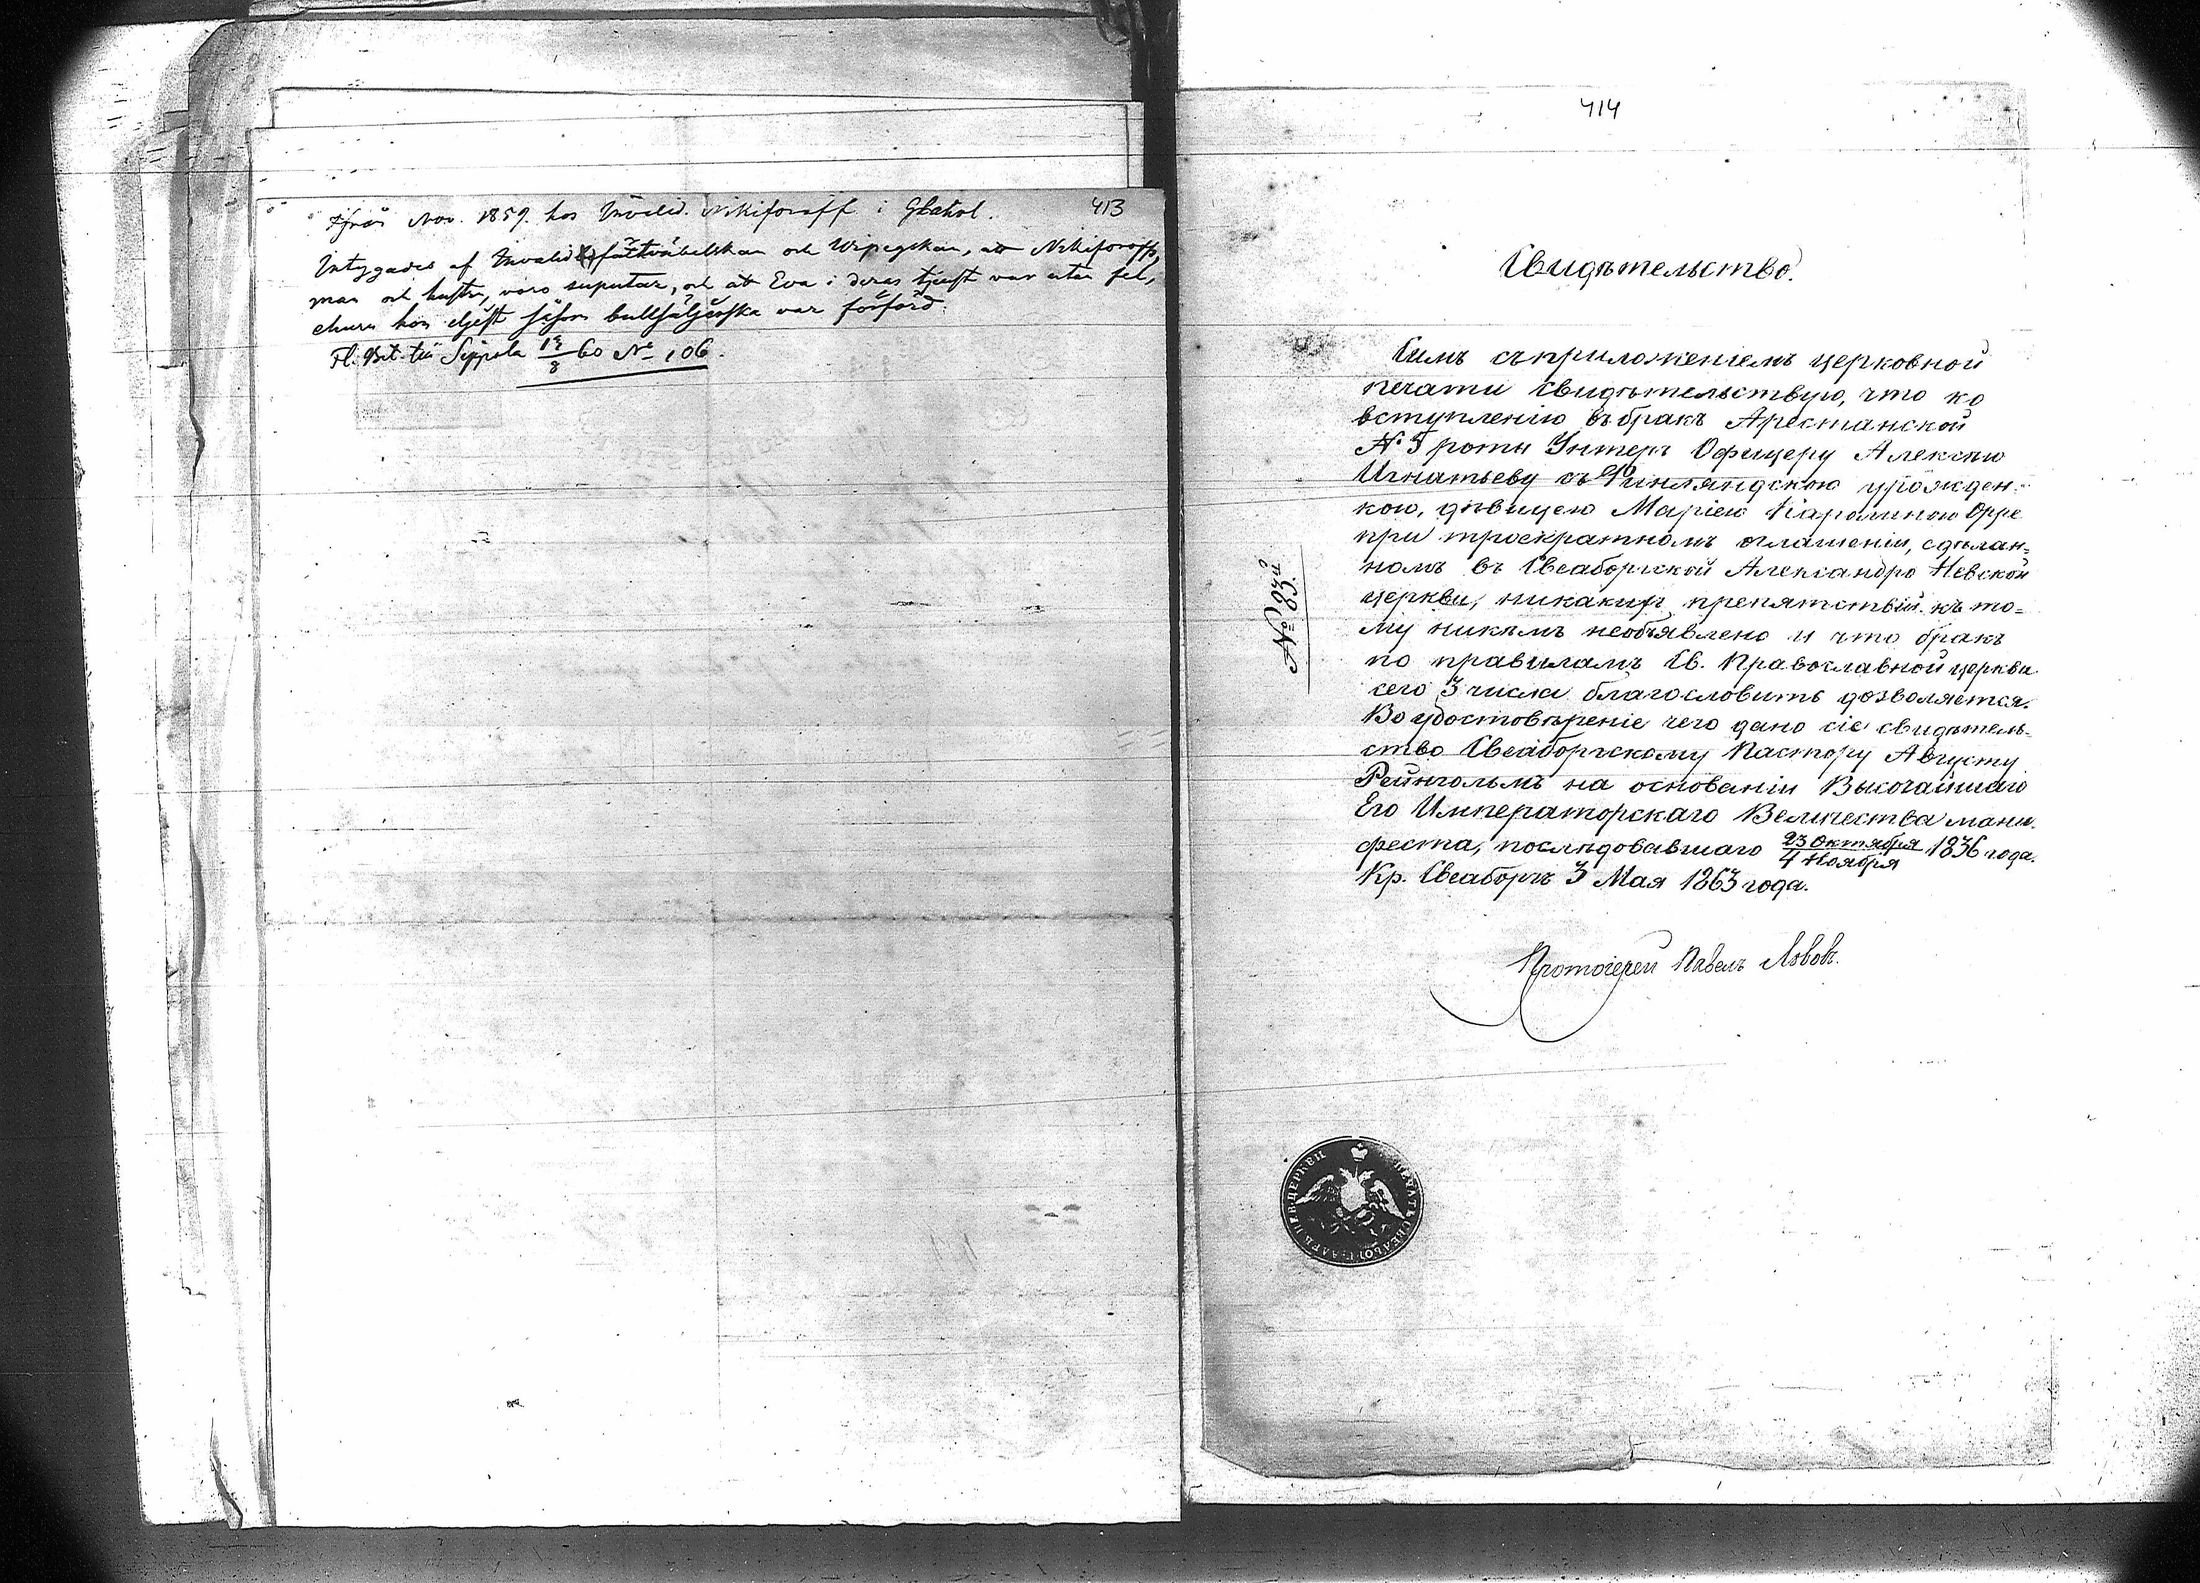 413
Ifrån Nov. 1859. hos Invalid. Nikiforoff i Gbatal.
Intygades af Invalid fältväbelskan och Wipegskan, att Nikiforoffs,
man och hustru, voro suputar, och att Eva i deras tjenst var utan fel,
ehuru hon eljest såsom bullförsäljerska var förförd.
Fl. Bet. till Sippola 19/8 60 No 106.
414
Свидѣтельство.
Симъ съ приложеніемъ церковной
печати свидѣтельствую, что ко
вступленію въ бракъ Арестанской
№ 5 роты Унтеръ Офицеру Алексѣю
Игнатьеву съ Финляндскою урожден-
кою, дѣвицею Маріею Каролиною Орре
при троекратномъ оглашеніи, сдѣлан=
номъ въ Свеаборгской Александро Невской
церкви, никакихъ препятствій къ то=
му никѣмъ необъявлено и что бракъ
по правиламъ Св. Православной церкви
сего 3 числа благословить дозволяется.
Во удостовѣреніе чего дано сіе свидѣтель-
ство Свеаборгскому Пастору Августу
Рейнгольмъ на основаніи Высочайшаго
Его Императорскаго Величества мани-
феста, послѣдовавшаго 23 Октября/4 Ноября 1836 года.
Кр. Свеаборгъ 3 Мая 1863 года.
Протоіерей Павелъ Львовъ.